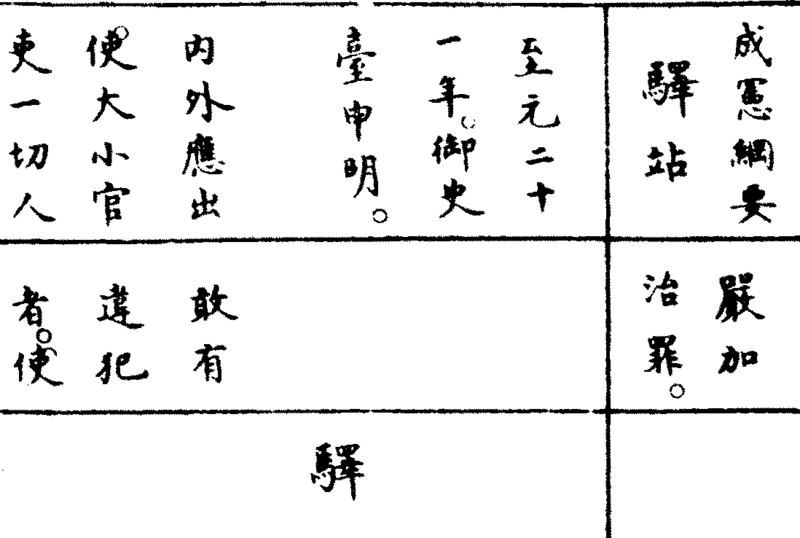 成憲綱要
驛站
至元二十
一年。御史
臺申明。
內外應出
使。大小官
吏一切人
嚴加
治罪。
敢有
違犯
者。使
驛